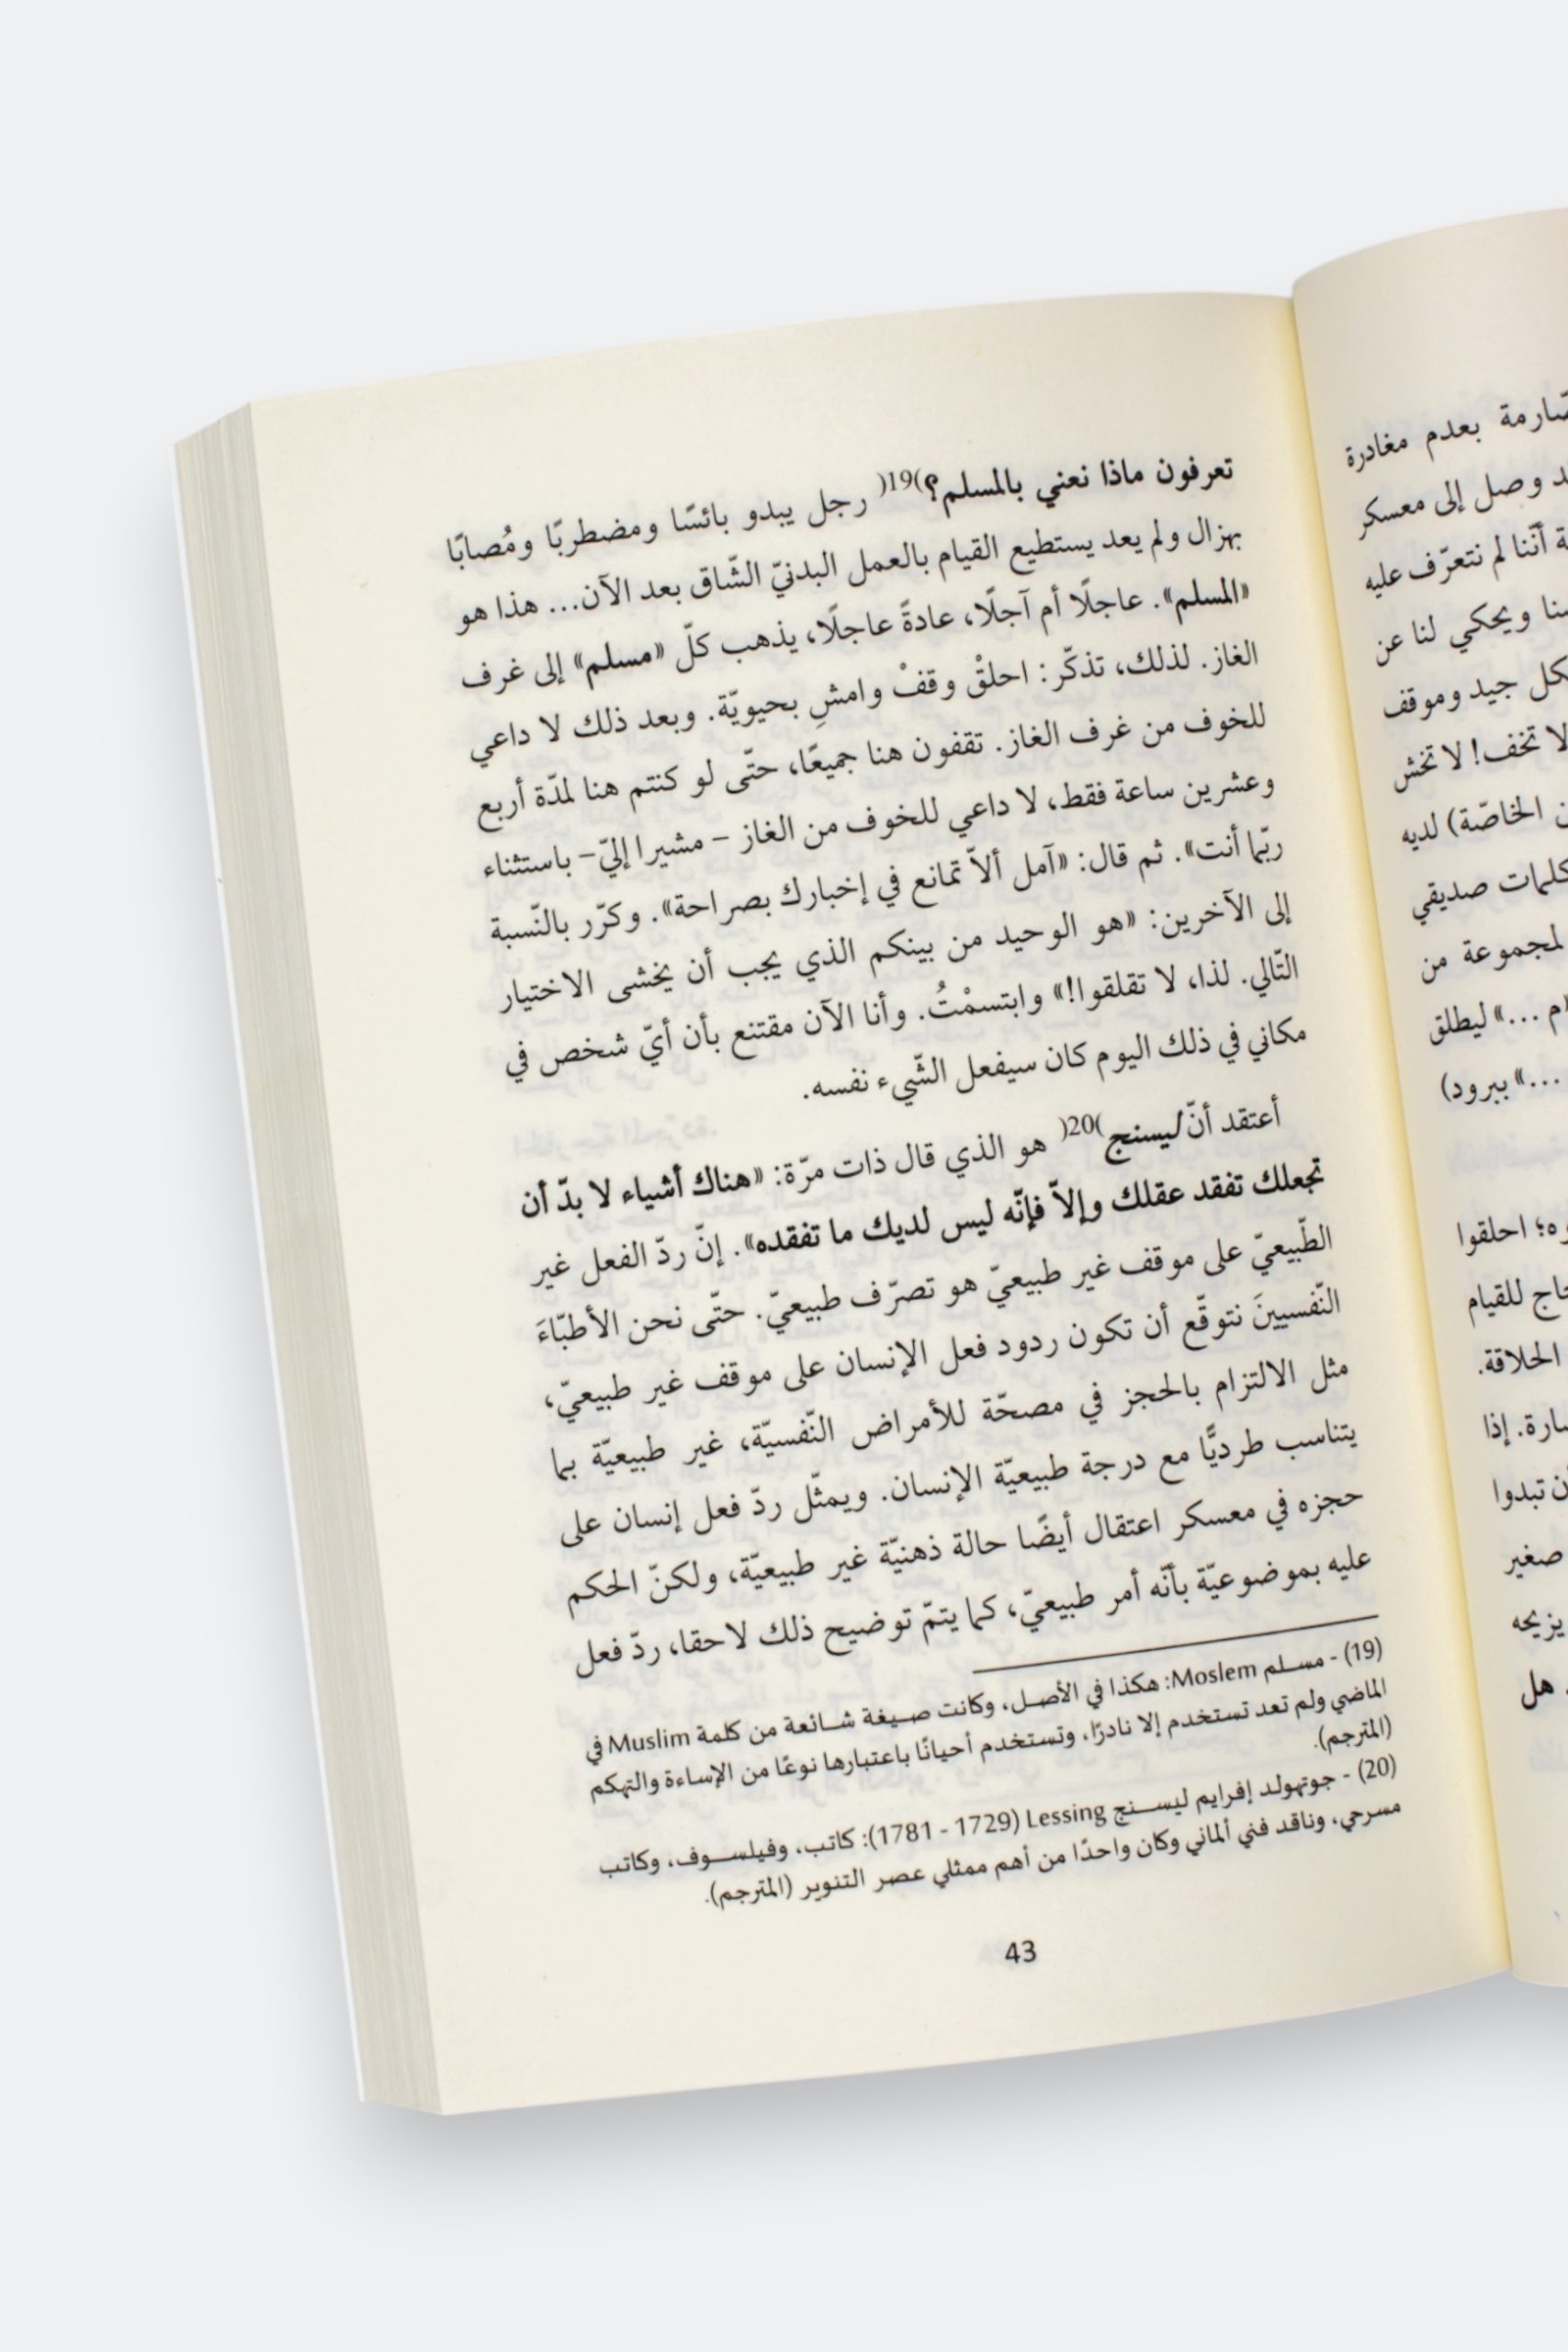 صّارمة بعدم مغادرة
وصل إلى معسكر
أنّنا لم نتعرّف عليه
ويحكي لنا عن
جيد وموقف
لا تخف! لا تخش
الخاصّة) لديه
كلمات صديقي
لمجموعة من
«م ...» ليطلق
...» ببرود)
احلقوا
للقيام
الحلاقة.
إذا
تبدوا
صغير
يزيحه
هل
تعرفون ماذا نعني بالمسلم؟)19( رجل يبدو بائسًا ومضطربًا ومُصابًا
بهزال ولم يعد يستطيع القيام بالعمل البدنيّ الشّاق بعد الآن... هذا هو
«المسلم». عاجلًا أم آجلًا، عادةً عاجلًا، يذهب كلّ «مسلم» إلى غرف
الغاز. لذلك، تذكّر: احلقْ وقفْ وامشِ بحيويّة. وبعد ذلك لا داعي
للخوف من غرف الغاز. تقفون هنا جميعًا، حتّى لو كنتم هنا لمدّة أربع
وعشرين ساعة فقط، لا داعي للخوف من الغاز – مشيرا إليّ– باستثناء
ربّما أنت». ثم قال: «آمل ألاّ تمانع في إخبارك بصراحة». وكرّر بالنّسبة
إلى الآخرين: «هو الوحيد من بينكم الذي يجب أن يخشى الاختيار
التّالي. لذا، لا تقلقوا!» وابتسمْتُ. وأنا الآن مقتنع بأن أيّ شخص في
مكاني في ذلك اليوم كان سيفعل الشّيء نفسه.
أعتقد أنّ ليسنج)20( هو الذي قال ذات مرّة: «هناك أشياء لا بدّ أن
تجعلك تفقد عقلك وإلاّ فإنّه ليس لديك ما تفقده». إنّ ردّ الفعل غير
الطّبيعيّ على موقف غير طبيعيّ هو تصرّف طبيعيّ. حتّى نحن الأطبّاءَ
النّفسيينَ نتوقّع أن تكون ردود فعل الإنسان على موقف غير طبيعيّ،
مثل الالتزام بالحجز في مصحّة للأمراض النّفسيّة، غير طبيعيّة بما
يتناسب طرديًّا مع درجة طبيعيّة الإنسان. ويمثّل ردّ فعل إنسان على
حجزه في معسكر اعتقال أيضًا حالة ذهنيّة غير طبيعيّة، ولكنّ الحكم
عليه بموضوعيّة بأنّه أمر طبيعيّ، كما يتمّ توضيح ذلك لاحقا، ردّ فعل
(19) - مسلم Moslem: هكذا في الأصل، وكانت صيغة شائعة من كلمة Muslim في
الماضي ولم تعد تستخدم إلا نادرًا، وتستخدم أحيانًا باعتبارها نوعًا من الإساءة والتهكم
(المترجم).
(20) - جوتهولد إفرايم ليسنج Lessing (1729 - 1781): كاتب، وفيلسوف، وكاتب
مسرحي، وناقد فني ألماني وكان واحدًا من أهم ممثلي عصر التنوير (المترجم).
43